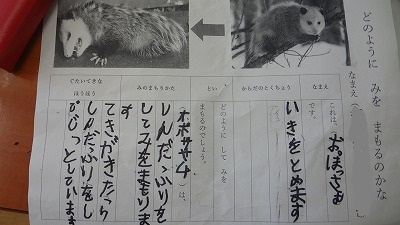 どのように みを まもるのかな
なまえ（
なまえ
これは、（おぽっさむ
です。
からだのとくちょう
いきをとめます
とい
どのように して みを
まもるのでしょう。
みのまもりかた
（オポッサム）は、
しんだふりを
してみをまもりま
す
ぐたいてきな
ほうほう
てきがきたら
しんだふりをし
てじっとしています